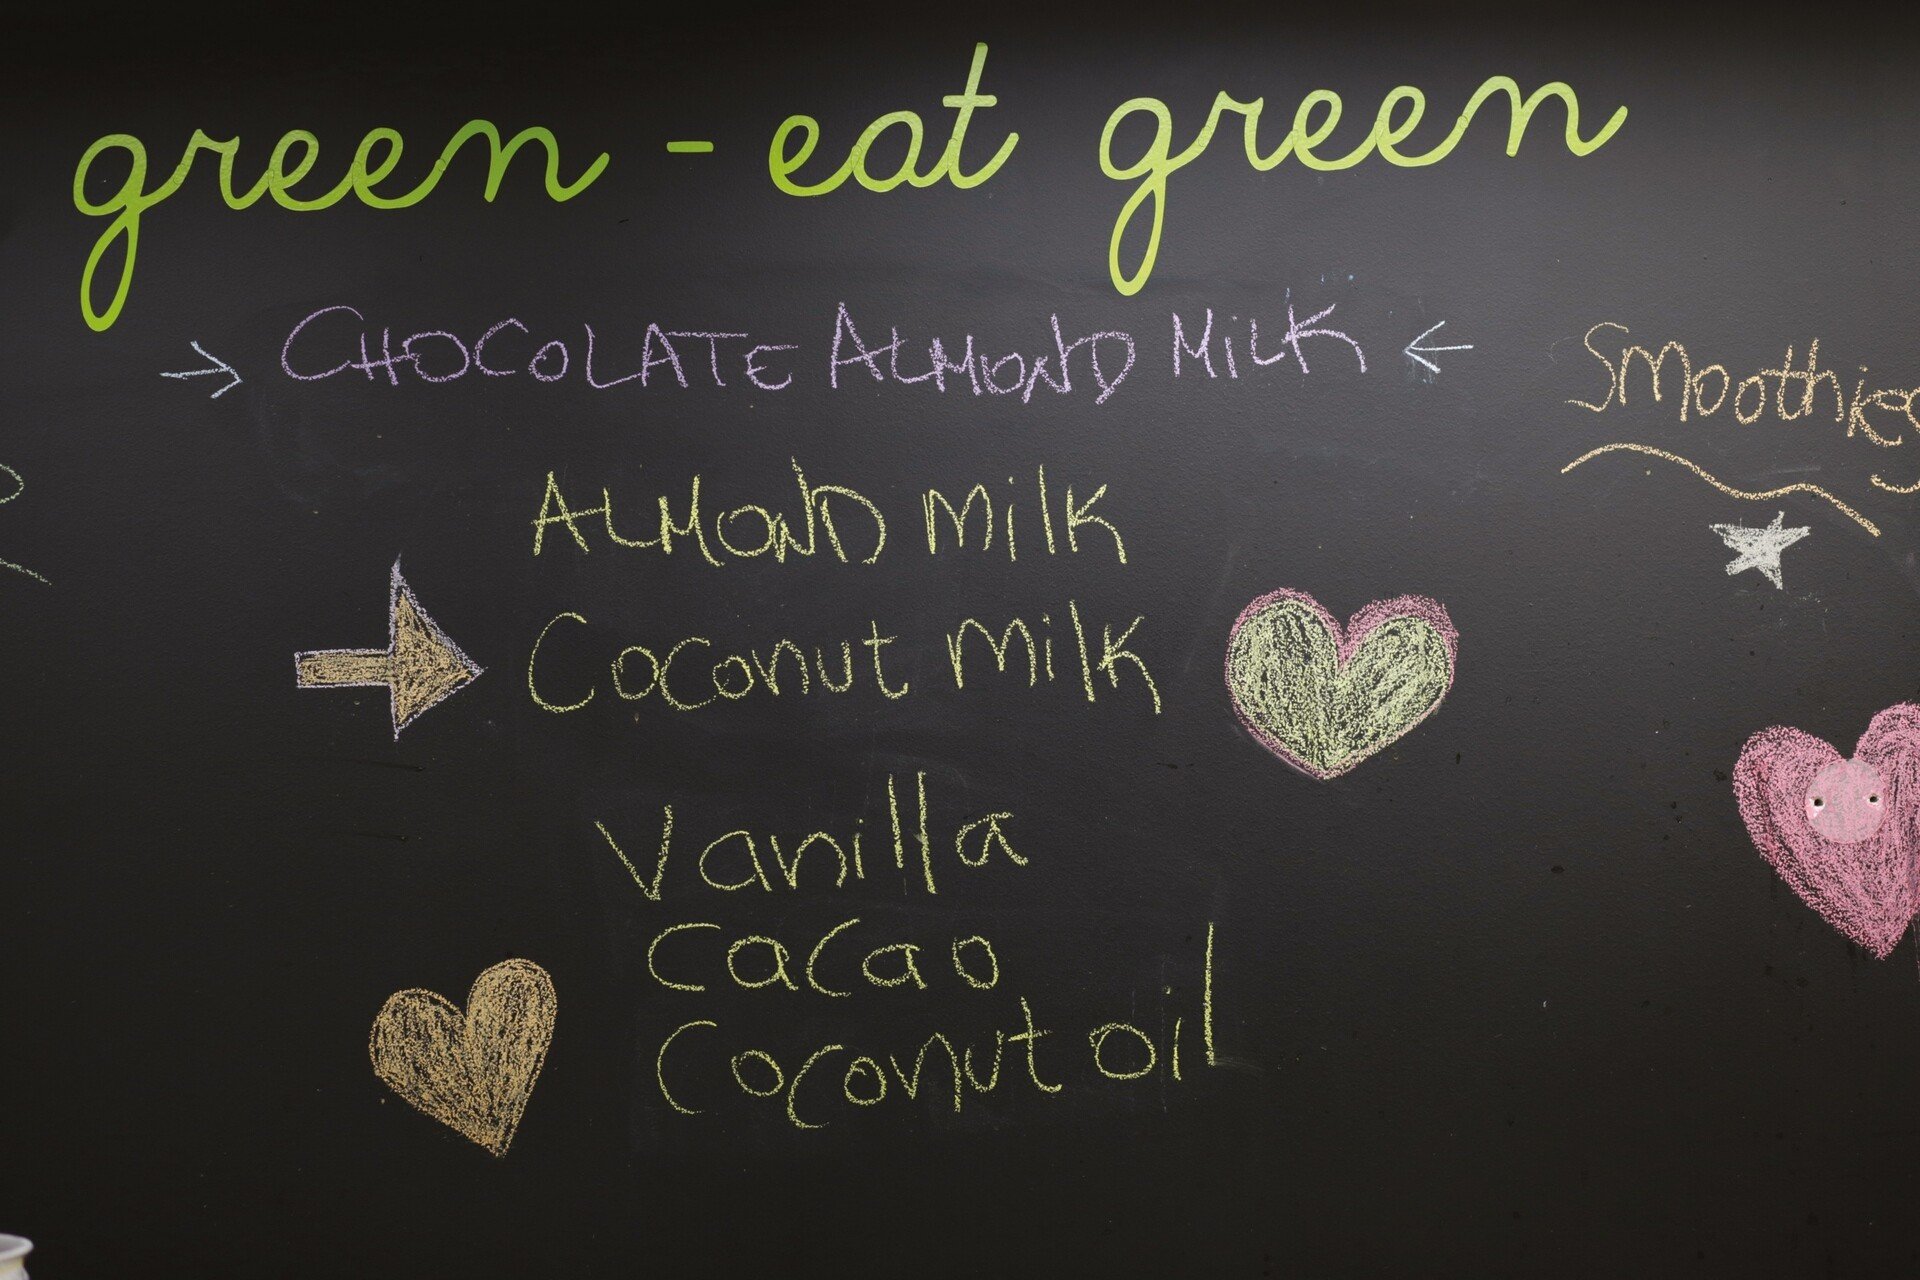 green - eat green
CHOCOLATE ALMOND MiLK
Smoothies
ALMOND Milk
Coconut Milk
Vanilla
Cacao
Coconut oil